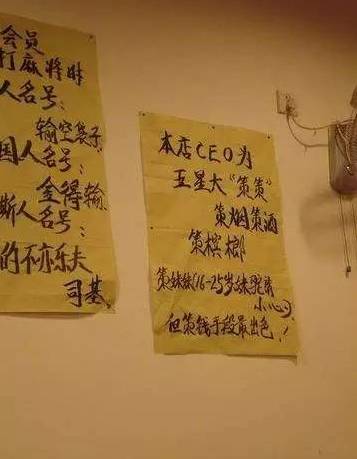 会员
打麻将时
人名号:
输空袋子
国人名号:
金得输
斯人名号:
的不亦乐夫
司基
本店CEO为
五星大“策策”
策烟策酒
策槟榔
策妹妹(16-25岁妹
小心)
但策钱手段最出色!